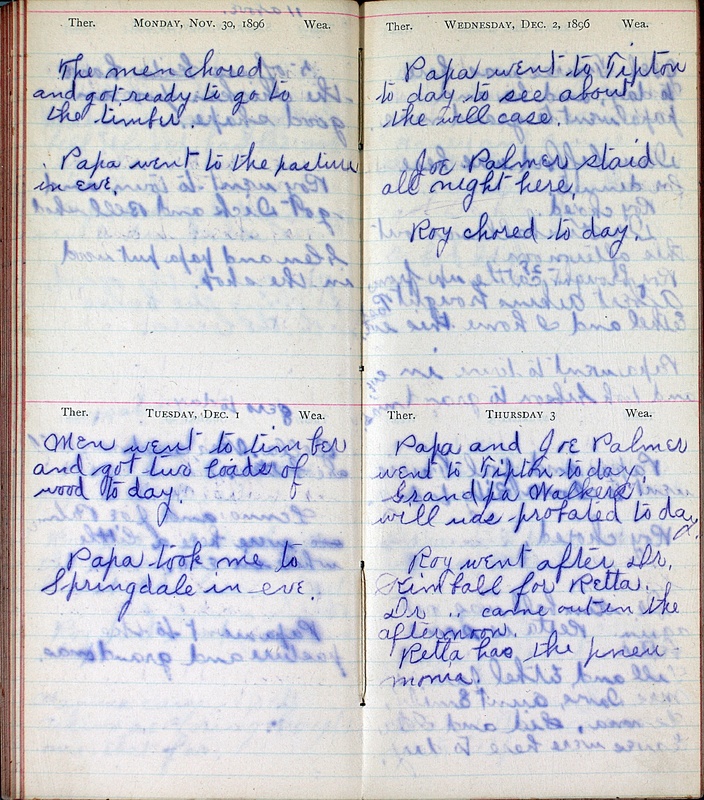 Ther. MONDAY, NOV. 30, 1896 Wea.
The men chored
and got ready to go to
the timber.
Papa went to the pasture
in eve.
Ther. TUESDAY, DEC. 1 Wea.
Men went to timber
and got two loads of
wood to day.
Papa took me to
Springdale in eve.
Ther. WEDNESDAY, DEC. 2, 1896 Wea.
Papa went to Tipton
to day to see about
the will case.
Joe Palmer staid
all night here.
Roy chored to day.
Ther. THURSDAY 3 Wea.
Papa and Joe Palmer
went to Tipton to day.
Grandpa Walkers
will was probated to day.
Roy went after Dr.
Kimball for Retta.
Dr. " came out in the
afternoon.
Retta has the pneu-
monia.